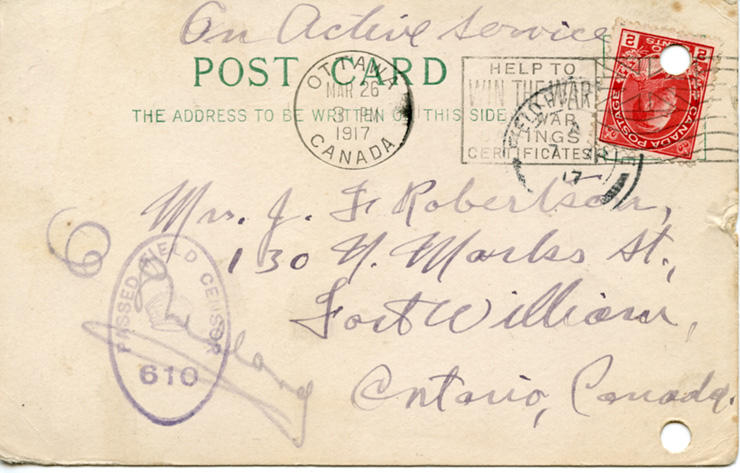 On Active Service
POST CARD
THE ADDRESS TO BE WRITTEN ON THIS SIDE
OTTAWA
MAR 26
3 PM
1917
CANADA
HELP TO
WIN THE WAR
WAR
INGS
CERTIFICATES
FIELD
17
2 CENTS 2
CANADA POSTAGE
Mrs. J. F. Robertson,
130 N. Marks St.,
Fort William,
Ontario, Canada.
6
PASSED FIELD CENSOR
610